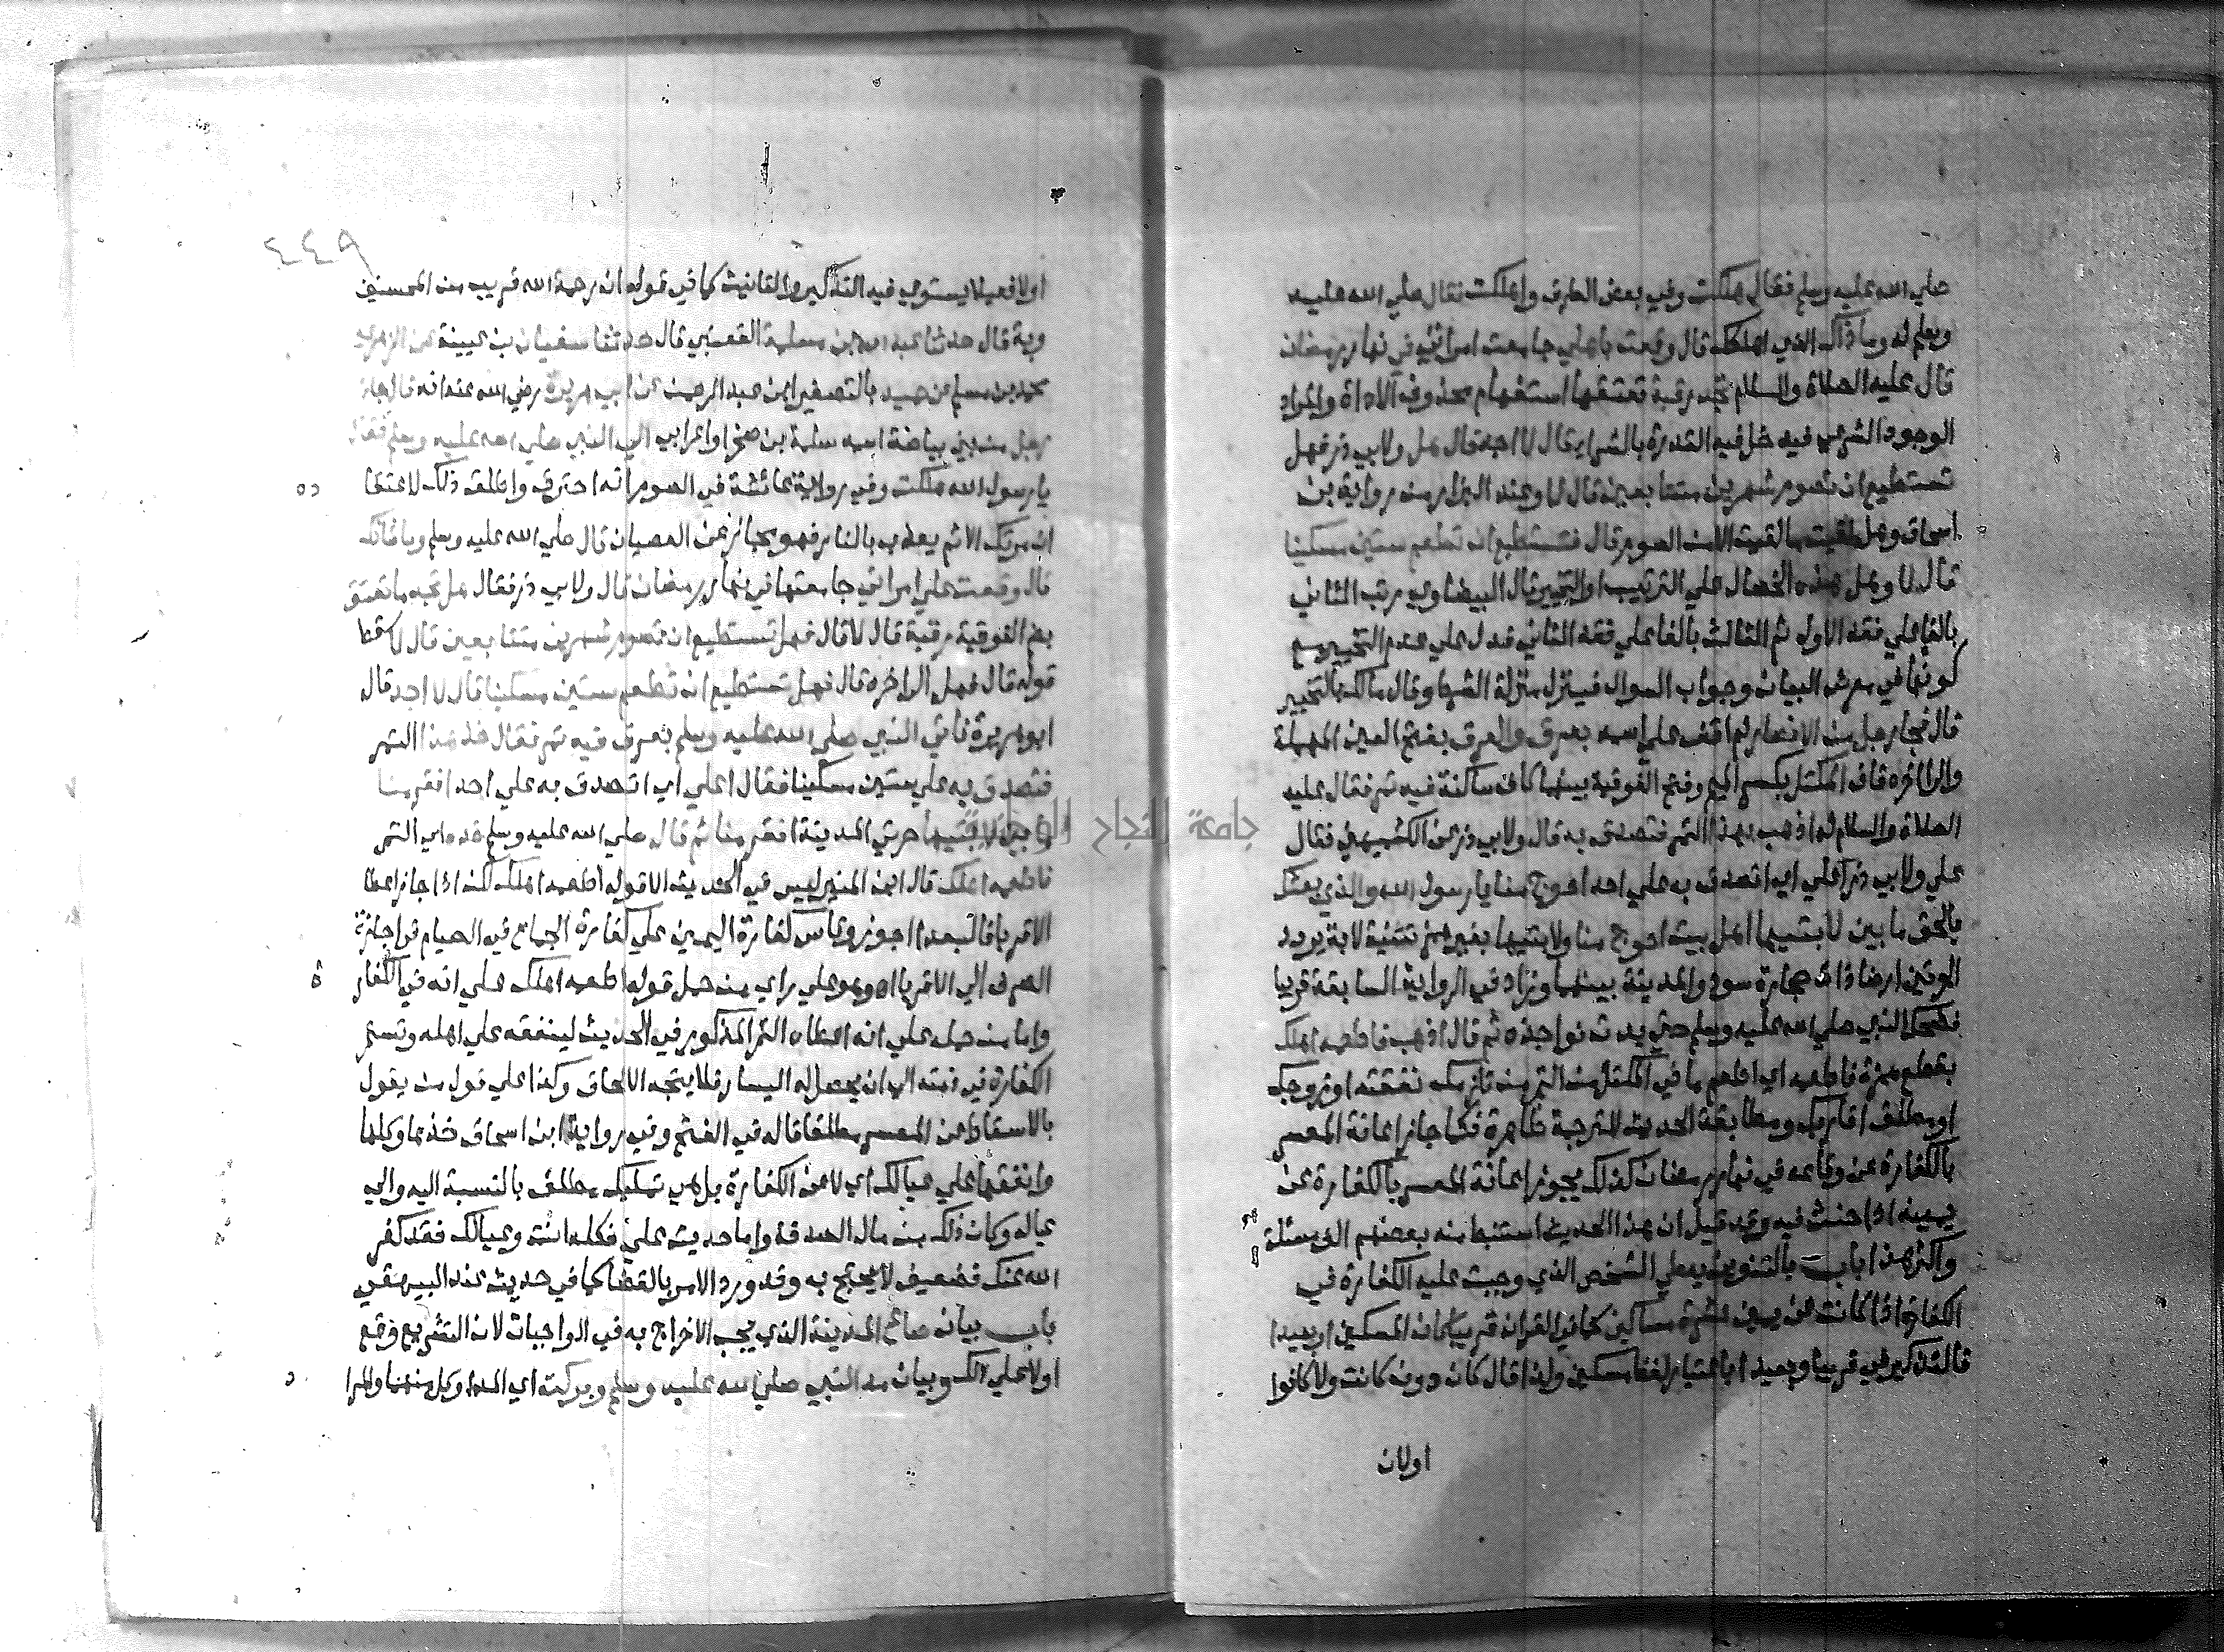 صلي الله عليه وسلم فقال هلكت وفي بعض الطرق واهلكت فقال صلي الله عليه
وسلم له وما ذاك الذي اهلكك قال وقعت باهلي جامعت امراتي في نهار رمضان
قال عليه الصلاة والسلام تجد رقبة تعتقها استفهام محذوف الاداة والمراد
الوجود الشرعي فيدخل فيه القدرة بالشرا قال لا اجد قال هل ولابي ذر فهل
تستطيع ان تصوم شهرين متتابعين قال لا وعند البزار من رواية بن
اسحاق وهل لقيت ما لقيت الا من الصوم قال فتستطيع ان تطعم ستين مسكينا
قال لا وهل هذه الخصال علي الترتيب او التخيير قال البيضاوي رتب الثاني
بالفا علي فقد الاول ثم الثالث بالفا علي فقد الثاني فدل علي عدم التخيير مع
كونها في معرض البيان وجواب السوال فينزل منزلة الشرط وقال مالك بالتخيير
قال فجا رجل من الانصار لم اقف علي اسمه بعرق والعرق بفتح العين المهملة
والرا اخره قاف المكتل بكسر الميم وفتح الفوقية بينهما كاف ساكنة فيه تمر فقال عليه
الصلاة والسلام له اذهب بهذا التمر فتصدق به قال ولابي ذر عن الكشميهني فقال
علي ولابي ذر اعلي اي اتصدق به علي احد احوج منا يا رسول الله والذي بعثك
بالحق ما بين لابتيها اهل بيت احوج منا ولابتيها بغير همز تثنية لابة يريد
الحرتين ارضا ذات حجارة سود والمدينة بينهما وزاد في الرواية السابقة قريبا
فضحك النبي صلي الله عليه وسلم حتي بدت نواجذه ثم قال اذهب فاطعمه اهلك
بقطع همزة فاطعمه اي اطعم ما في المكتل من التمر من تلزمك نفقته او زوجك
او مطلق اقاربك ومطابقة الحديث للترجمة ظاهرة فكما جاز اعانة المعسر
بالكفارة عن وقاعه في نهار رمضان كذلك يجوز اعانة المعسر بالكفارة عن
يمينه اذا حنث فيه وقد قيل ان هذا الحديث استنبط منه بعضهم الف مسئلة
واكثر هذا باب بالتنوين يعطي الشخص الذي وجبت عليه الكفارة في
الكفارة اذا كانت عن يمين عشرة مساكين كما في القران قريبا كان المسكين او بعيدا
فالتذكير في قريبا وبعيدا باعتبار لفظ مسكين ولذا قال كان دون كانت ولا كانوا
اولان
٤٤٩
اولا فعيلا يستوي فيه التذكير والتانيث كما في قوله ان رحمة الله قريب من المحسنين
وبه قال حدثنا عبد الله بن مسلمة القعنبي قال حدثنا سفيان بن عيينة عن الزهري
محمد بن مسلم عن حميد بالتصغير ابن عبد الرحمن عن ابي هريرة رضي الله عنه انه قال جا
رجل من بني بياضة اسمه سلمة بن صخر او اعرابي الي النبي صلي الله عليه وسلم فقال
يا رسول الله هلكت وفي رواية عائشة في الصوم انه احترق واطلق ذلك لاعتقا
ان مرتكب الاثم يعذب بالنار فهو مجاز عن العصيان قال صلي الله عليه وسلم وما شانك
قال وقعت علي امراتي جامعتها في نهار رمضان قال ولابي ذر فقال هل تجد ما تعتق
بضم الفوقية رقبة قال لا قال فهل تستطيع ان تصوم شهرين متتابعين قال لا سقط
قوله قال فهل الي اخره قال فهل تستطيع ان تطعم ستين مسكينا قال لا اجد قال
ابو هريرة فاتي النبي صلي الله عليه وسلم بعرق فيه تمر فقال خذ هذا التمر
فتصدق به علي ستين مسكينا فقال اعلي اي اتصدق به علي احد افقر منا
ما بين لابتيها حرتي المدينة افقر منا ثم قال صلي الله عليه وسلم خذه اي التمر
فاطعمه اهلك قال ابن المنير ليس في الحديث الا قوله اطعمه اهلك لكن اذا جاز اعطا
الاقربا فالبعدا اجوز وقاس كفارة اليمين علي كفارة الجماع في الصيام في اجازة
الصرف الي الاقربا اه وهو علي راي من حمل قوله اطعمه اهلك علي انه في الكفار
واما من حمله علي انه اعطاه التمر المذكور في الحديث لينفقه علي اهله وتستمر
الكفارة في ذمته الي ان يحصل له اليسار فلا يتجه الالحاق وكذا علي قول من يقول
بالاسقاط عن المعسر مطلقا قاله في الفتح وفي رواية ابن اسحاق خذها وكلها
وانفقها علي عيالك اي لا عن الكفارة بل هي تمليك مطلق بالنسبة اليه والي
عياله وكان ذلك من مال الصدقة واما حديث علي فكله انت وعيالك فقد كفر
الله عنك فضعيف لا يحتج به وقد ورد الامر بالقضا كما في حديث عند البيهقي
باب بيان صاع المدينة الذي يجب الاخراج به في الواجبات لان التشريع وقع
اولا علي ذلك وبيان مد النبي صلي الله عليه وسلم وبركته اي المد او كل منهما والمرا
جامعة النجاح